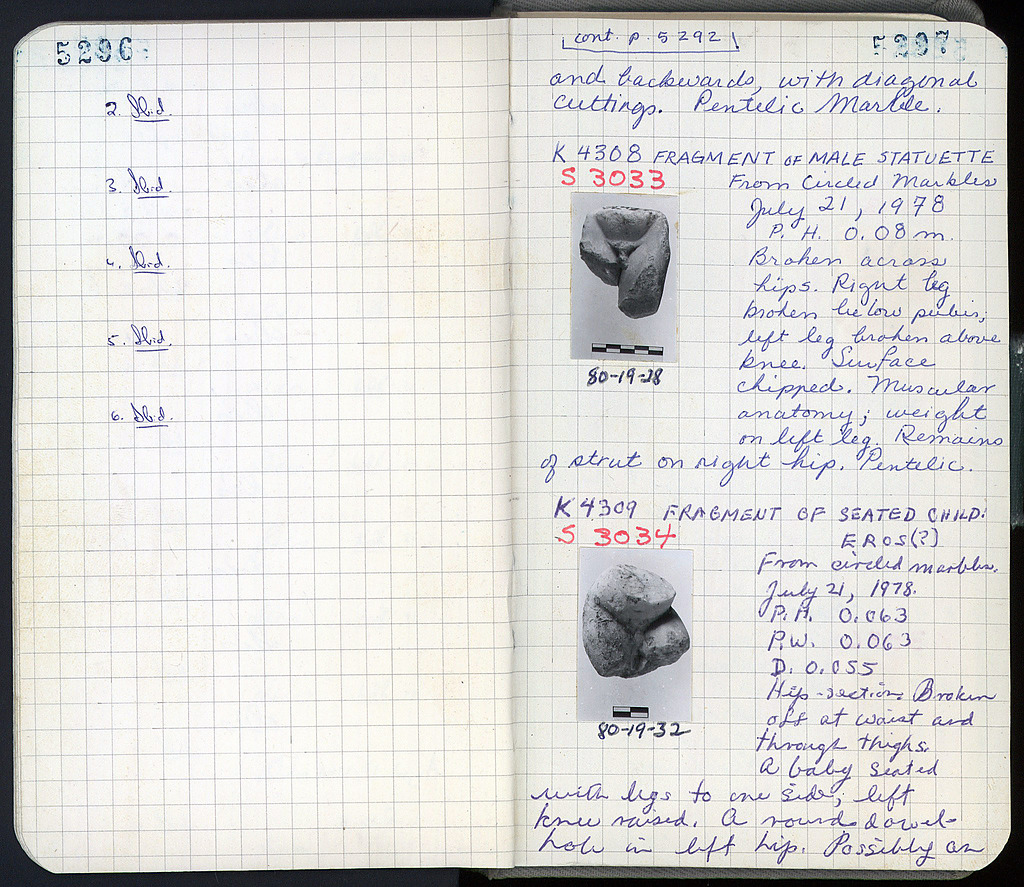 5296
2. Ibid.
3. Ibid.
4. Ibid.
5. Ibid.
6. Ibid.
cont. p. 5292
5297
and backwards, with diagonal
cuttings. Pentelic Marble.
K 4308 FRAGMENT OF MALE STATUETTE
S 3033
From Circled Marbles
July 21, 1978
P. H. 0.08 m.
Broken across
hips. Right leg
broken below pubis;
left leg broken above
knee. Surface
chipped. Muscular
anatomy; weight
on left leg. Remains
of strut on right hip. Pentelic.
80-19-28
K 4309 FRAGMENT OF SEATED CHILD:
EROS(?)
S 3034
From circled marbles.
July 21, 1978.
P.H. 0.063
P.W. 0.063
D. 0.055
Hip-section. Broken
off at waist and
through thighs.
A baby seated
with legs to one side; left
knee raised. A round dowel-
hole in left hip. Possibly an
80-19-32